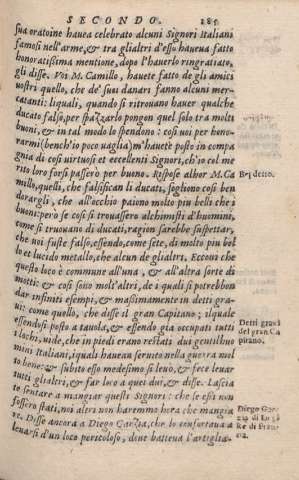 SECONDO. 285
sua oratoine hauea celebrato alcuni Signori Italiani
famosi nell'arme,& tra glialtri d'esso haueua fatto
honoratissima mentione, dopo l'hauerlo ringratiato,
gli disse. Voi M. Camillo, hauete fatto de gli amici
vostri quello, che de' suoi danari fanno alcuni mer-
catanti: liquali, quando si ritrouano hauer qualche
ducato falso, per spazzarlo pongon quel solo tra molti
buoni, & in tal modo lo spendono: cosi uoi per hono-
rarmi (bench'io poco uaglia) m'hauete posto in compa
gnia di cosi virtuosi et eccellenti Signori, ch'io col me
rito loro forsi passero per buono. Rispose alhor M. Ca
millo, quelli, che falsifican li ducati, sogliono cosi ben
dorargli, che all'occhio paiono molto piu belli che i
buoni: pero se cosi si trouassero alchimisti d'huomini,
come si trouano di ducati, ragion sarebbe suspettar,
che uoi fuste falso, essendo, come sete, di molto piu bel
lo et lucido metallo, che alcun de glialtri. Eccoui che
questo loco è commune all'una, & all'altra sorte di
motti: & cosi sono molt'altri, de i quali si potrebbon
dar infiniti esempi, & massimamente in detti gra-
ui: come quello, che disse il gran Capitano; ilquale
essendosi posto a tauola, & essendo gia occupati tutti
i lochi, vide, che in piedi erano restati dui gentilhuo
mini Italiani, iquali hauean seruito nella guerra mol
to bene: & subito esso medesimo si leuò, & fece leuar
tutti glialtri, & far loco a quei dui, & disse. Lascia
te sentare a mangiar questi Signori: che se essi non
fossero stati, noi altri non haremmo hora che mangia
re. Disse ancora a Diego Garzia, che lo confortaua a
leuarsi d'un loco pericoloso, doue batteua l'artiglia-
Bei detto.
Detti graui
del gran Ca
pitano.